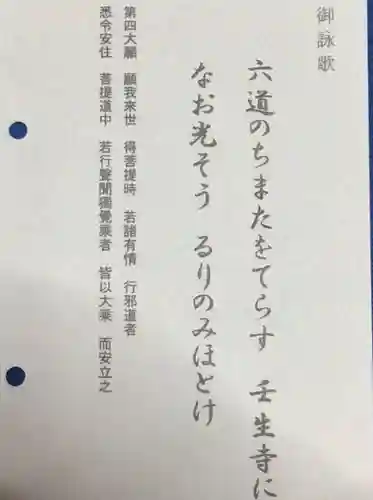 御詠歌
六道のちまたをてらす　壬生寺に
なお光そう　るりのみほとけ
第四大願　願我來世　得菩提時　若諸有情　行邪道者
悉令安住　菩提道中　若行聲聞獨覺乘者　皆以大乘　而安立之